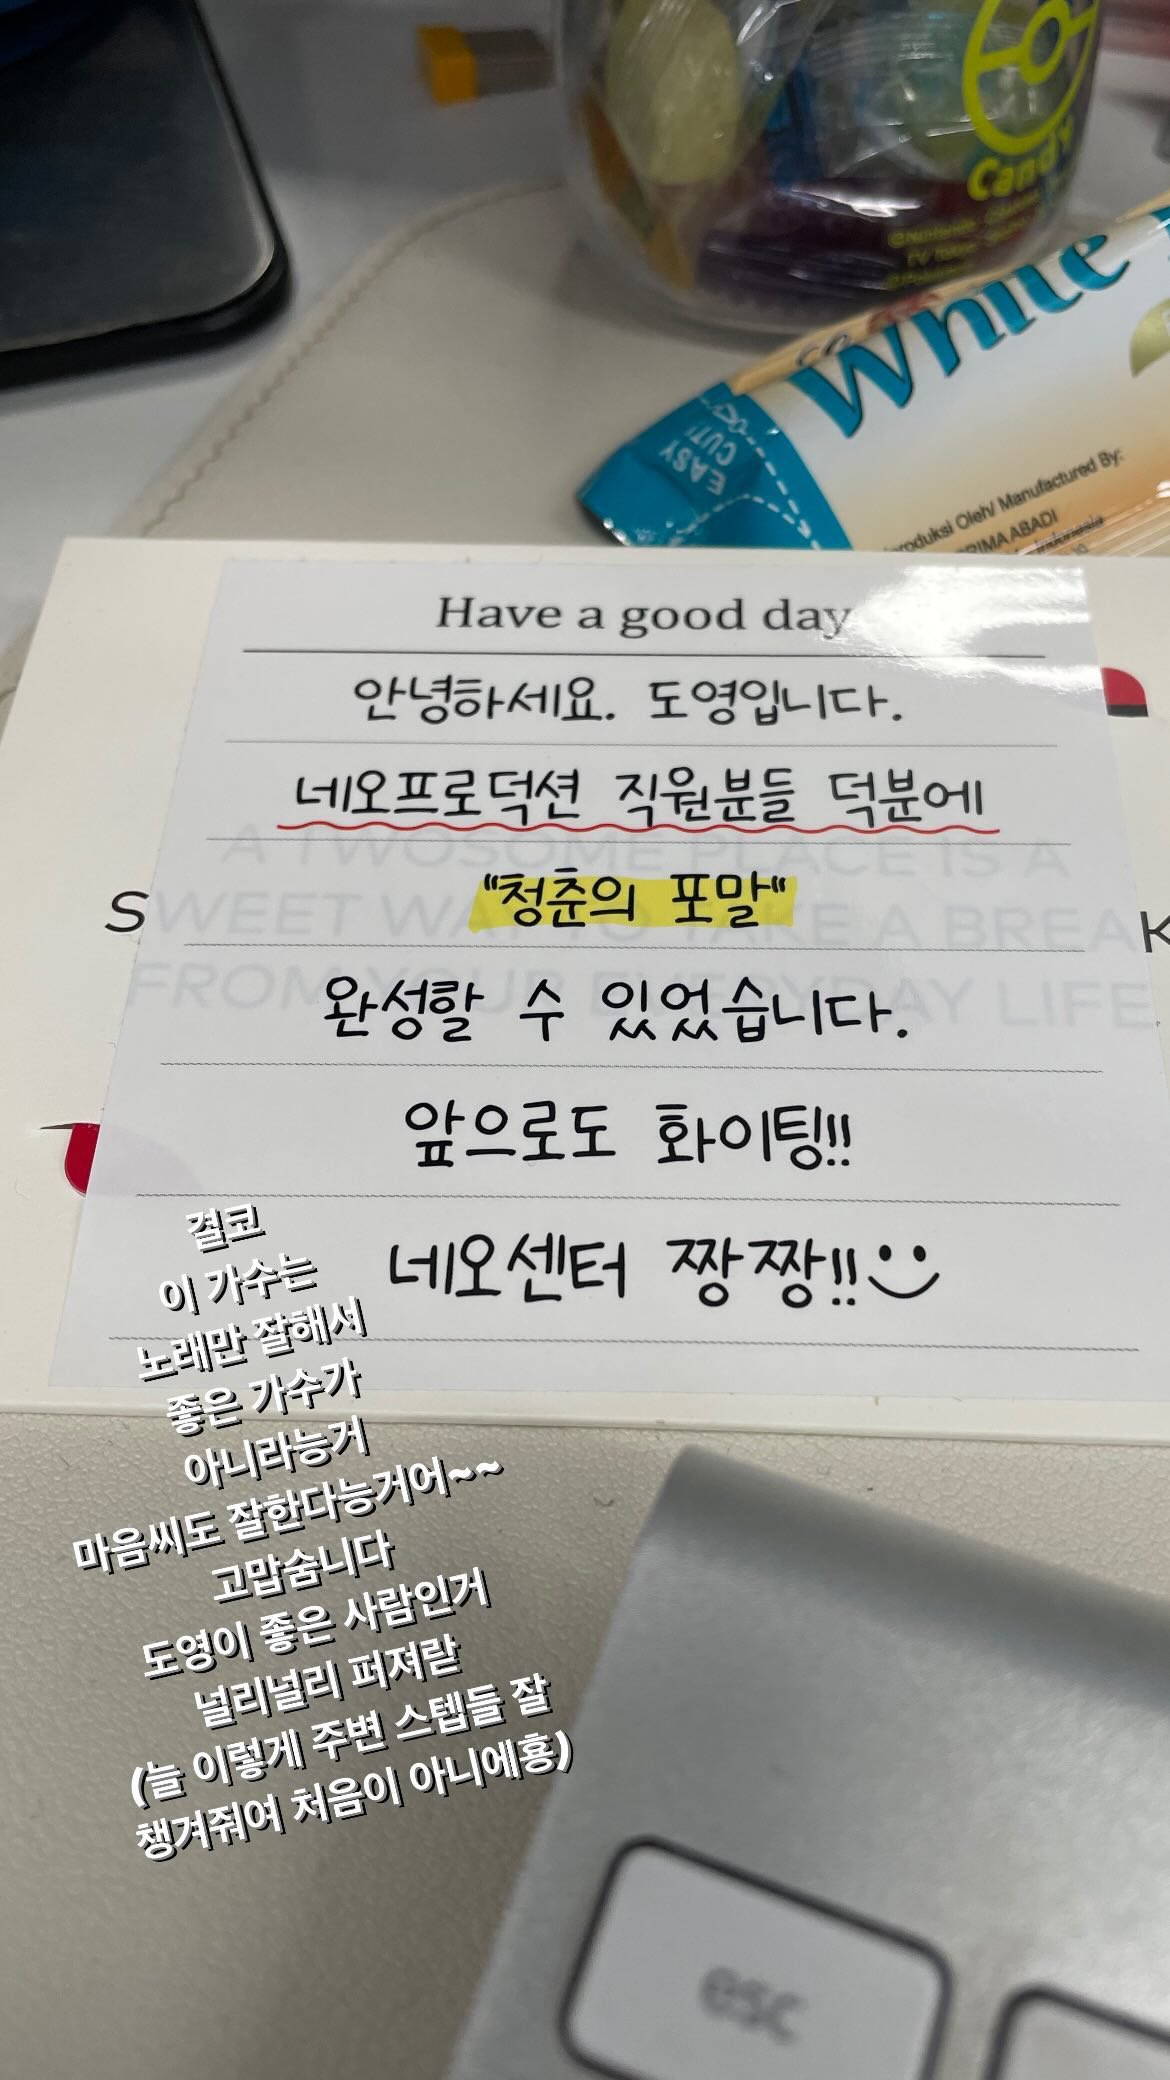 Candy
White
EASY
CUT!
Produksi Oleh/ Manufactured By:
PRIMA ABADI
Indonesia
Have a good day
안녕하세요. 도영입니다.
네오프로덕션 직원분들 덕분에
"청춘의 포말"
완성할 수 있었습니다.
앞으로도 화이팅!!
네오센터 짱짱!!
A TWOSOME PLACE IS A
SWEET WAY TO TAKE A BREAK
FROM YOUR EVERYDAY LIFE
결코
이 가수는
노래만 잘해서
좋은 가수가
아니라능거
마음씨도 잘한다능거어~~
고맙숨니다
도영이 좋은 사람인거
널리널리 퍼져랃
(늘 이렇게 주변 스텝들 잘
챙겨줘여 처음이 아니에횽)
esc